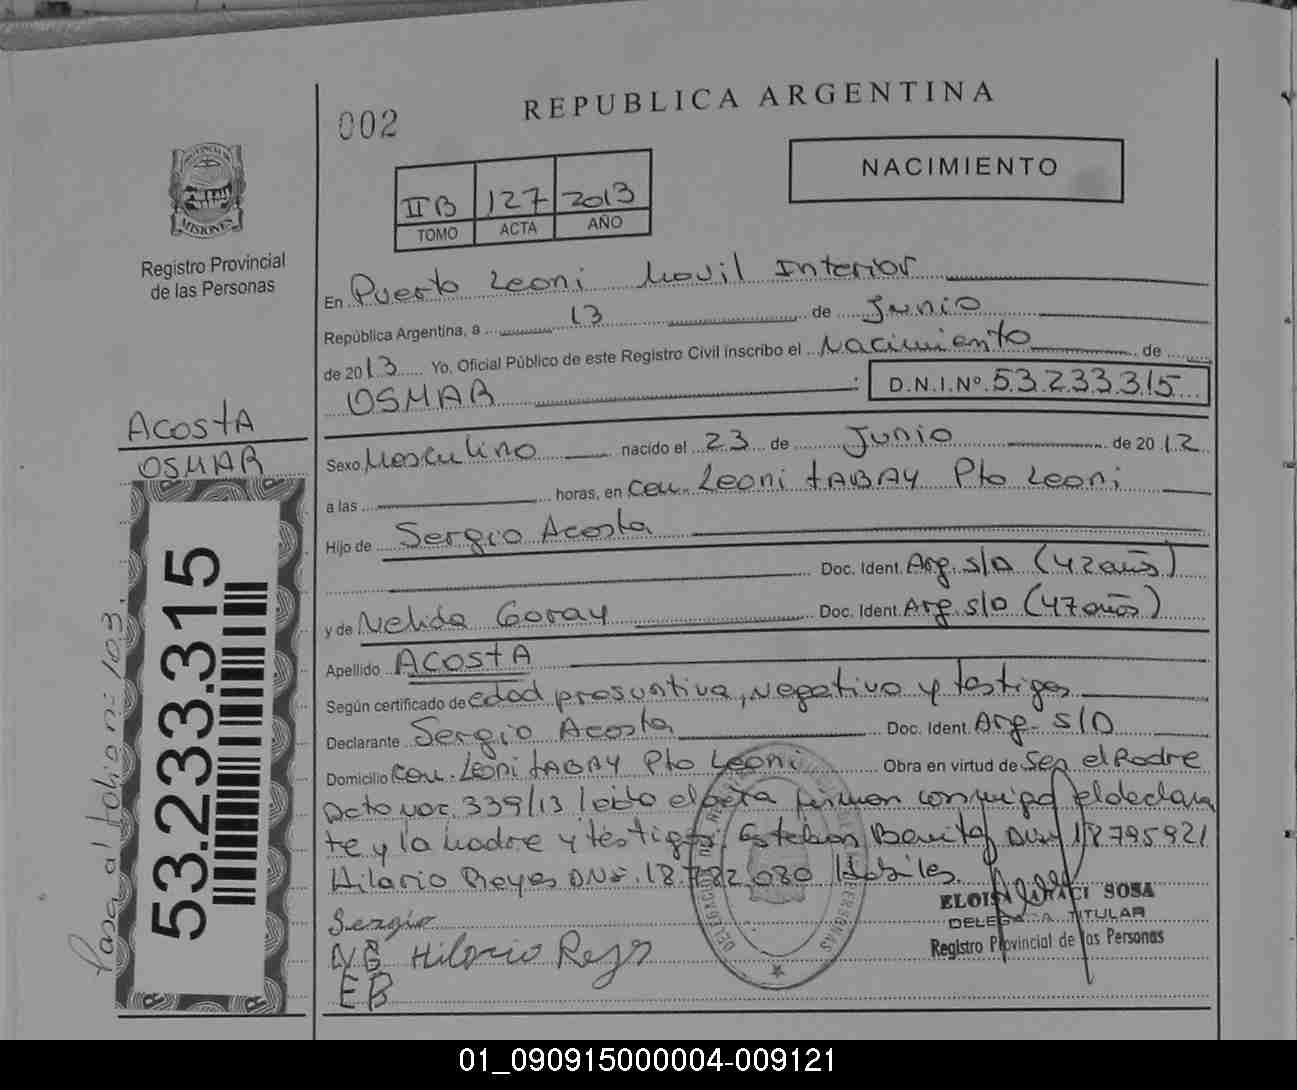 002
REPUBLICA ARGENTINA
NACIMIENTO
II B 127 2013
TOMO ACTA AÑO
PROVINCIA DE
MISIONES
Registro Provincial
de las Personas
En Puerto Leoni Movil Interior
República Argentina, a 13 de Junio
de 2013 Yo, Oficial Público de este Registro Civil inscribo el Nacimiento de
OSMAR : D.N.I.Nº. 53.233.315
Acosta
OSMAR
53.233.315
Pasa al folio nº 103.
Sexo Masculino nacido el 23 de Junio de 2012
a las horas, en Com. Leoni tABAY Pto Leoni
Hijo de Sergio Acosta
Doc. Ident. Arg. s/D (42 años)
y de Nelida Goray Doc. Ident. Arg. s/D (47 años)
Apellido ACOSTA
Según certificado de edad presuntiva, Negativo y testigos
Declarante Sergio Acosta Doc. Ident. Arg. S/D
Domicilio Com. Leoni tABAY Pto Leoni Obra en virtud de Ser el Padre
Dcto nac. 339/13 leida el acta firman conmigo el declaran
te y la madre y testigos: Esteban Benitez DNI 18.795.921
Hilario Reyes DNI. 18.782.080 Habiles.
Sergio
N.G Hilario Reys
EB
ELOISA SOSA
DELEGADA TITULAR
Registro Provincial de las Personas
01_090915000004-009121